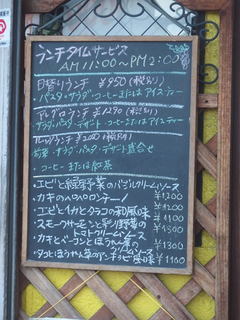 ランチタイムサービス
AM 11:00～PM 2:00
日替りランチ ¥950 (税別)
・パスタ・サラダ・コーヒーまたはアイスティー
ランチ ¥1290 (税別)
サラダ・パスタ・デザート・コーヒーまたはアイスティー
ランチ (税別)
前菜・サラダ・パスタ・デザート盛合せ
・コーヒーまたは紅茶
・エビと緑野菜のバジルクリームソース ¥1200
・カキのペペロンチーノ ¥1200
・エビとイカとタラコの和風味 ¥1100
・スモークサーモンと彩り野菜の
トマトクリームソース ¥1500
・カキとベーコンとほうれん草の
クリームソース ¥1300
・タコとほうれん草のアンチョビ風味 ¥1100